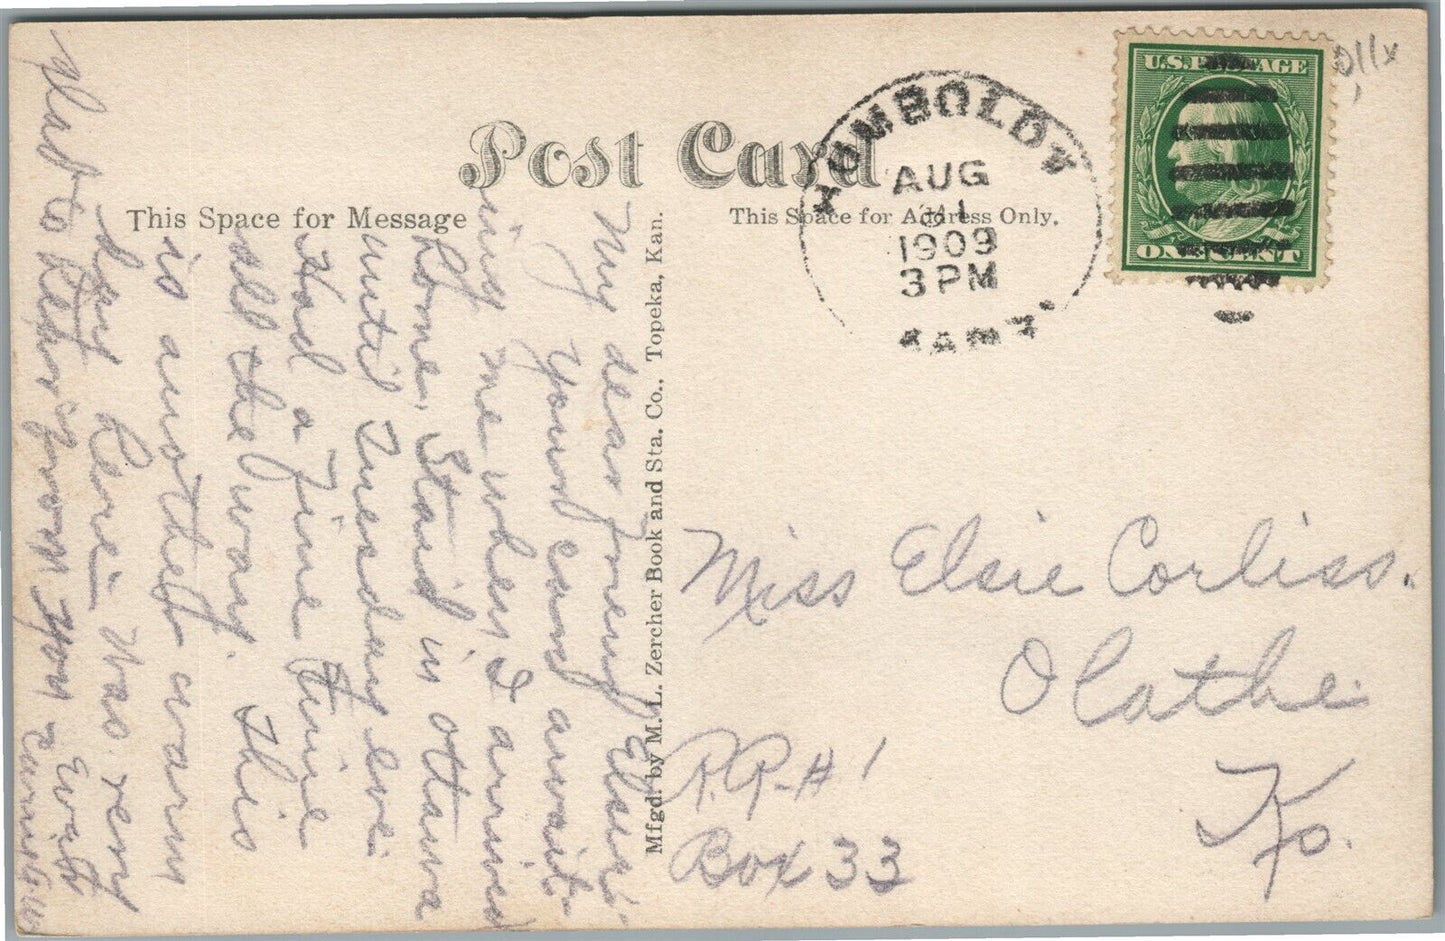 Post Card
This Space for Message
This Space for Address Only.
HUMBOLDT
AUG
1909
3 PM
KANS.
U.S. POSTAGE
ONE CENT
011x
Mfgd. by M. L. Zercher Book and Sta. Co., Topeka, Kan.
My dear Elsie:
Your card await-
ing me when I arrived
home. Staid in Ottawa
until Tuesday eve
Had a fine time
all the way. This
is another warm
day here. Was very
glad to hear from you
Miss Elsie Corliss.
Olathe
Ks.
R.R. # 1
Box 33